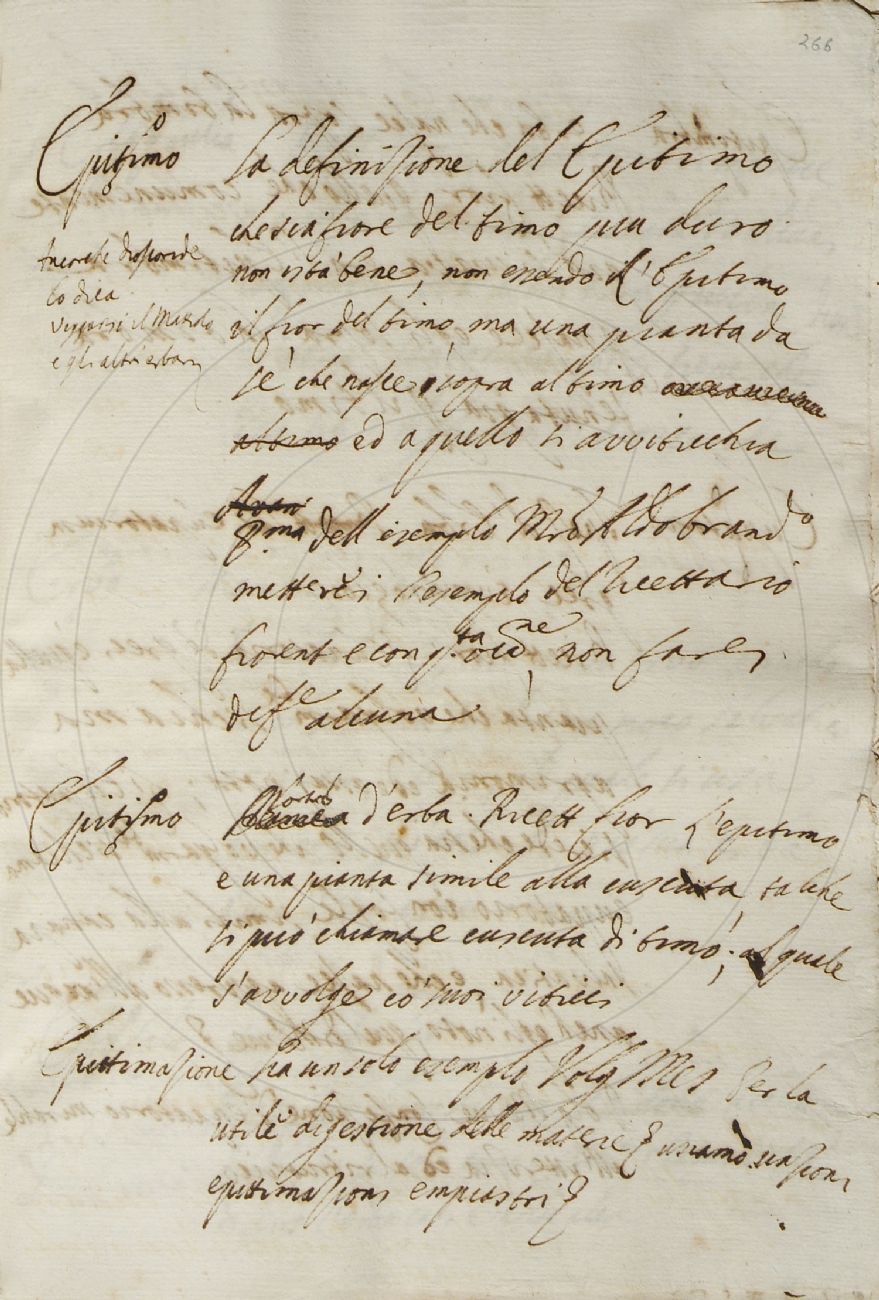 266
Epitimo
La definizione del Epitimo
che sia fiore del timo piu duro
non istà bene, non essendo l'Epitimo
il fior del timo, ma una pianta da
sè che nasce sopra al timo
altimo ed a quello si avviticchia
Ancorche Dioscoride
lo dica
Veggasi il Mattiolo
e gli altri erbari
Avan
Pma dell esemplo Mro Aldobrando
metterei l'esemplo del Ricettario
fiorent e con qta occne non farei
difse alcuna
Epitimo
d'erba. Ricett fior L'epitimo
e una pianta simile alla cuscuta, talche
si può chiamare cuscuta di timo; al quale
s'avvolge co' suoi viticci
Epittimazione ha un solo esemplo Volg Mes Per la
utile digestione delle materie usiamo
epittimazioni empiastri